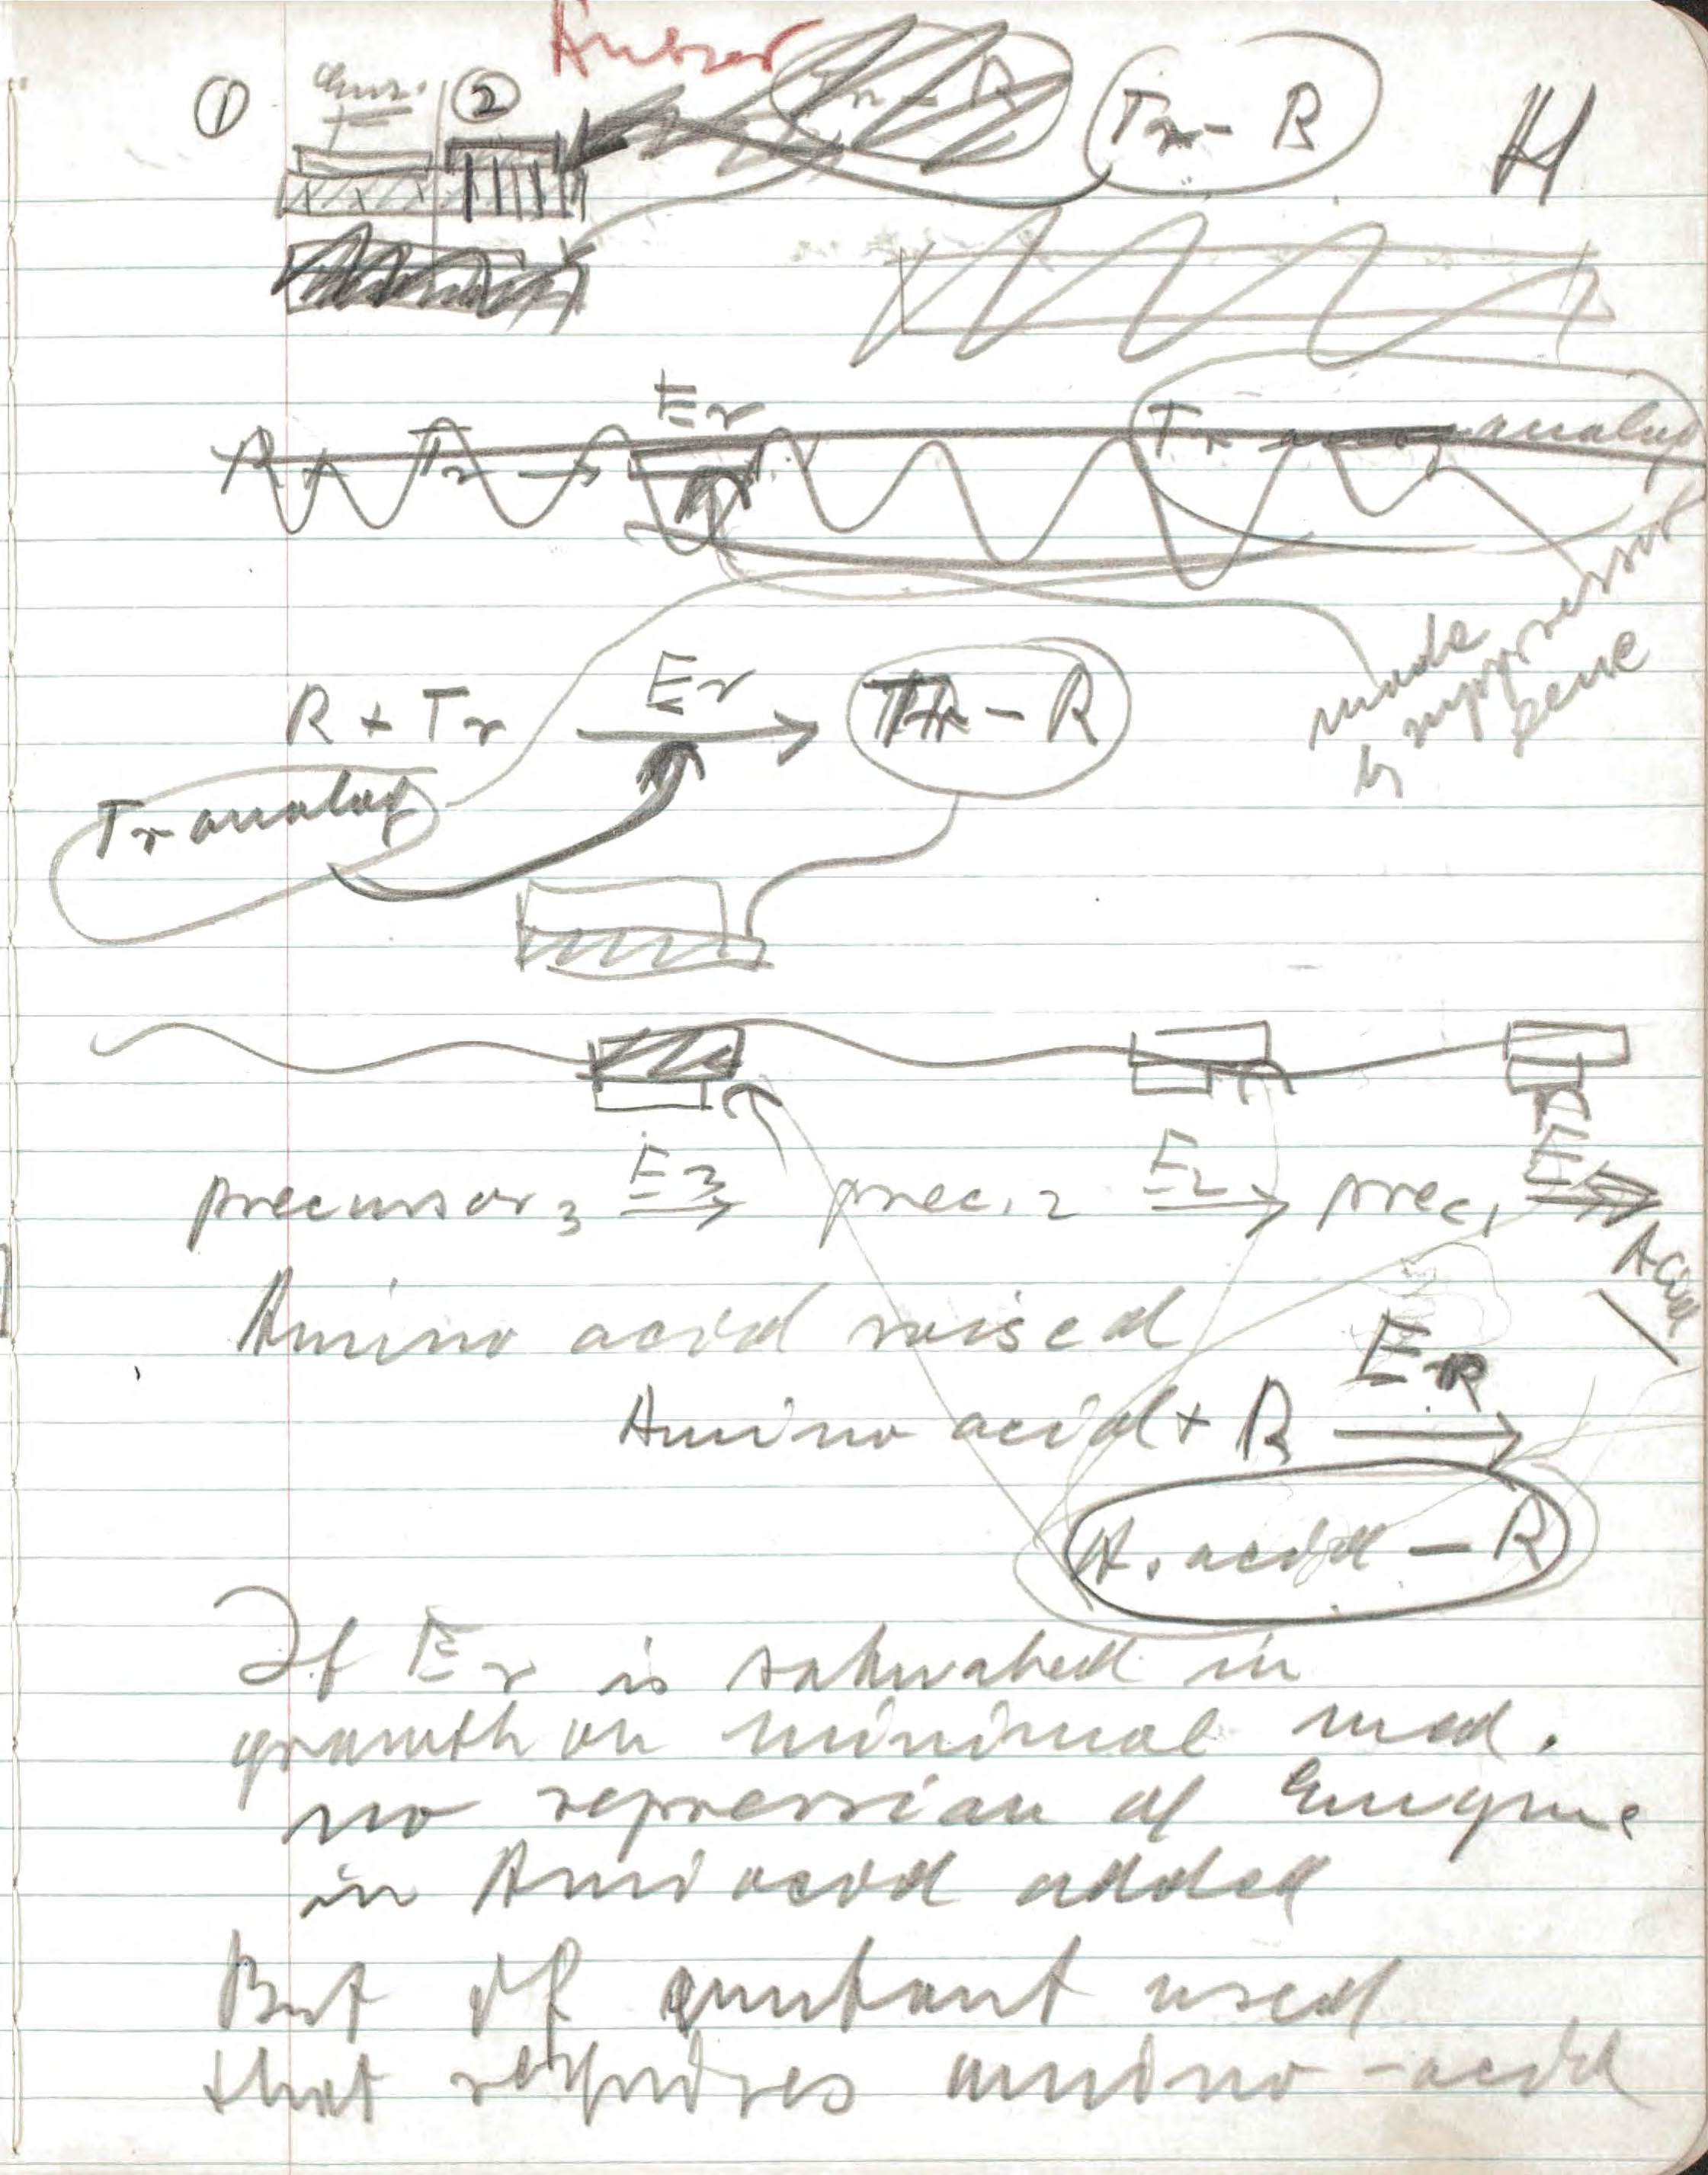 ① Enz. ②
Tr - R
Tr - R
H
Er
R + Tr →
Tr analog
made
by repressor
gene
Er
R + Tr → Tr - R
Tr analog
precursor 3 E3 → prec. 2 E2 → prec 1 E →
Amino acid raised
ER
Amino acid + R →
A. acid - R
If Er is saturated in
growth on minimal med.
no repression of Enzyme
in Amino acid added
But if mutant used
that requires amino-acid